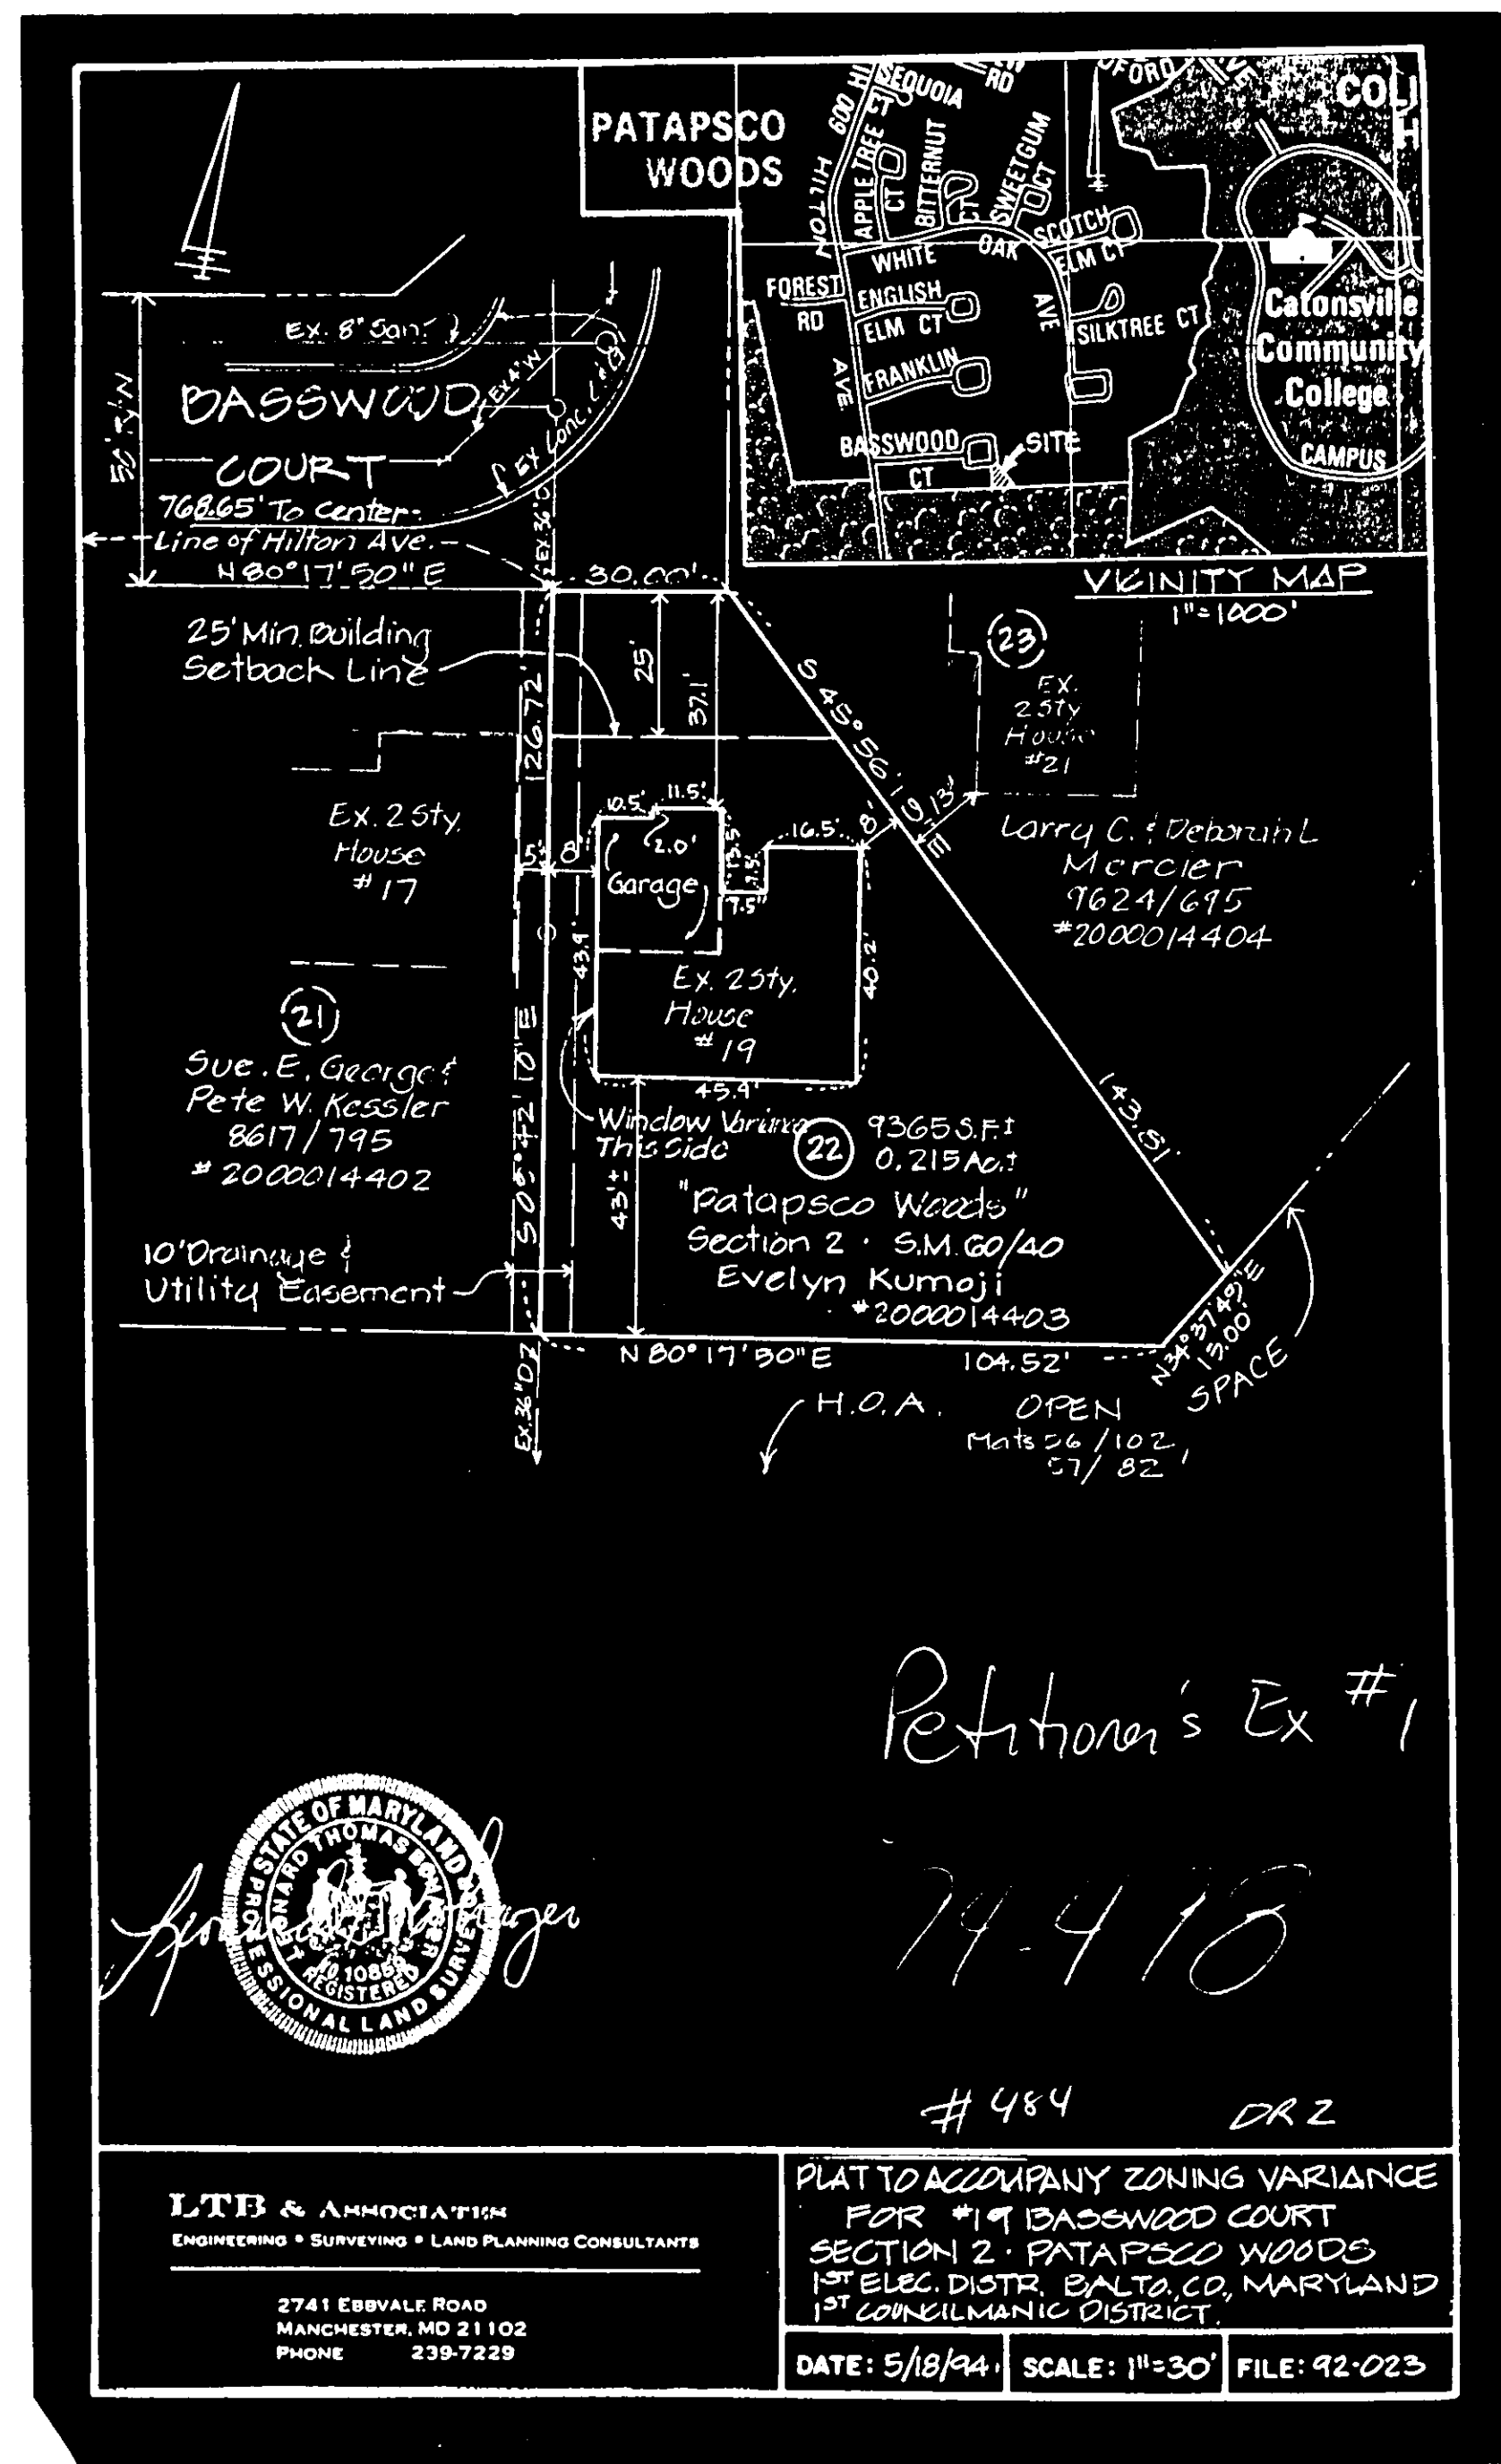 PATAPSCO
WOODS
SEQUOIA
CT
RD
600
HILTON
AVE
APPLE TREE
CT
BITTERNUT
CT
SWEETGUM
CT
SCOTCH
ELM CT
WHITE
OAK
AVE
FOREST
RD
ENGLISH
ELM CT
SILKTREE CT
FRANKLIN
BASSWOOD
CT
SITE
Catonsville
Community
College
CAMPUS
VICINITY MAP
1"=1000'
Ex. 8" San.
Ex 4" W
BASSWOOD
COURT
Ex Conc. C & G
50' R/W
768.65' To Center-
Line of Hilton Ave.
N 80°17'50" E
30.00'
25' Min. Building
Setback Line
25'
37.1'
126.72'
S 45°56'19" E
143.81'
23
EX.
2 Sty
House
#21
13'
Larry C. & Deborah L
Mercier
9624/695
#2000014404
Ex. 2 Sty.
House
#17
5'
8'
10.5'
11.5'
2.0'
13.5'
7.5'
7.5'
16.5'
8'
Garage
43.9'
40.2'
Ex. 2 Sty.
House
#19
45.9'
21
Sue. E. George &
Pete W. Kessler
8617/795
#2000014402
Window Variance
This Side
22
9365 S.F.±
0.215 Ac.±
43'±
"Patapsco Woods"
Section 2 · S.M. 60/40
Evelyn Kumoji
#2000014403
10' Drainage &
Utility Easement
N 80°17'50" E
104.52'
N34°37'49"E
15.00'
Ex. 36"
H.O.A.
OPEN
SPACE
56/102,
57/82
Petitioner's Ex #1
94-478
STATE OF MARYLAND
PROFESSIONAL LAND SURVEYOR
LEONARD THOMAS BOHAGER
REGISTERED
#484
DR 2
LTB & ASSOCIATES
ENGINEERING • SURVEYING • LAND PLANNING CONSULTANTS
2741 EBBVALE ROAD
MANCHESTER, MD 21102
PHONE 239-7229
PLAT TO ACCOMPANY ZONING VARIANCE
FOR #19 BASSWOOD COURT
SECTION 2 · PATAPSCO WOODS
1ST ELEC. DISTR. BALTO. CO., MARYLAND
1ST COUNCILMANIC DISTRICT.
DATE: 5/18/94
SCALE: 1"=30'
FILE: 92-023